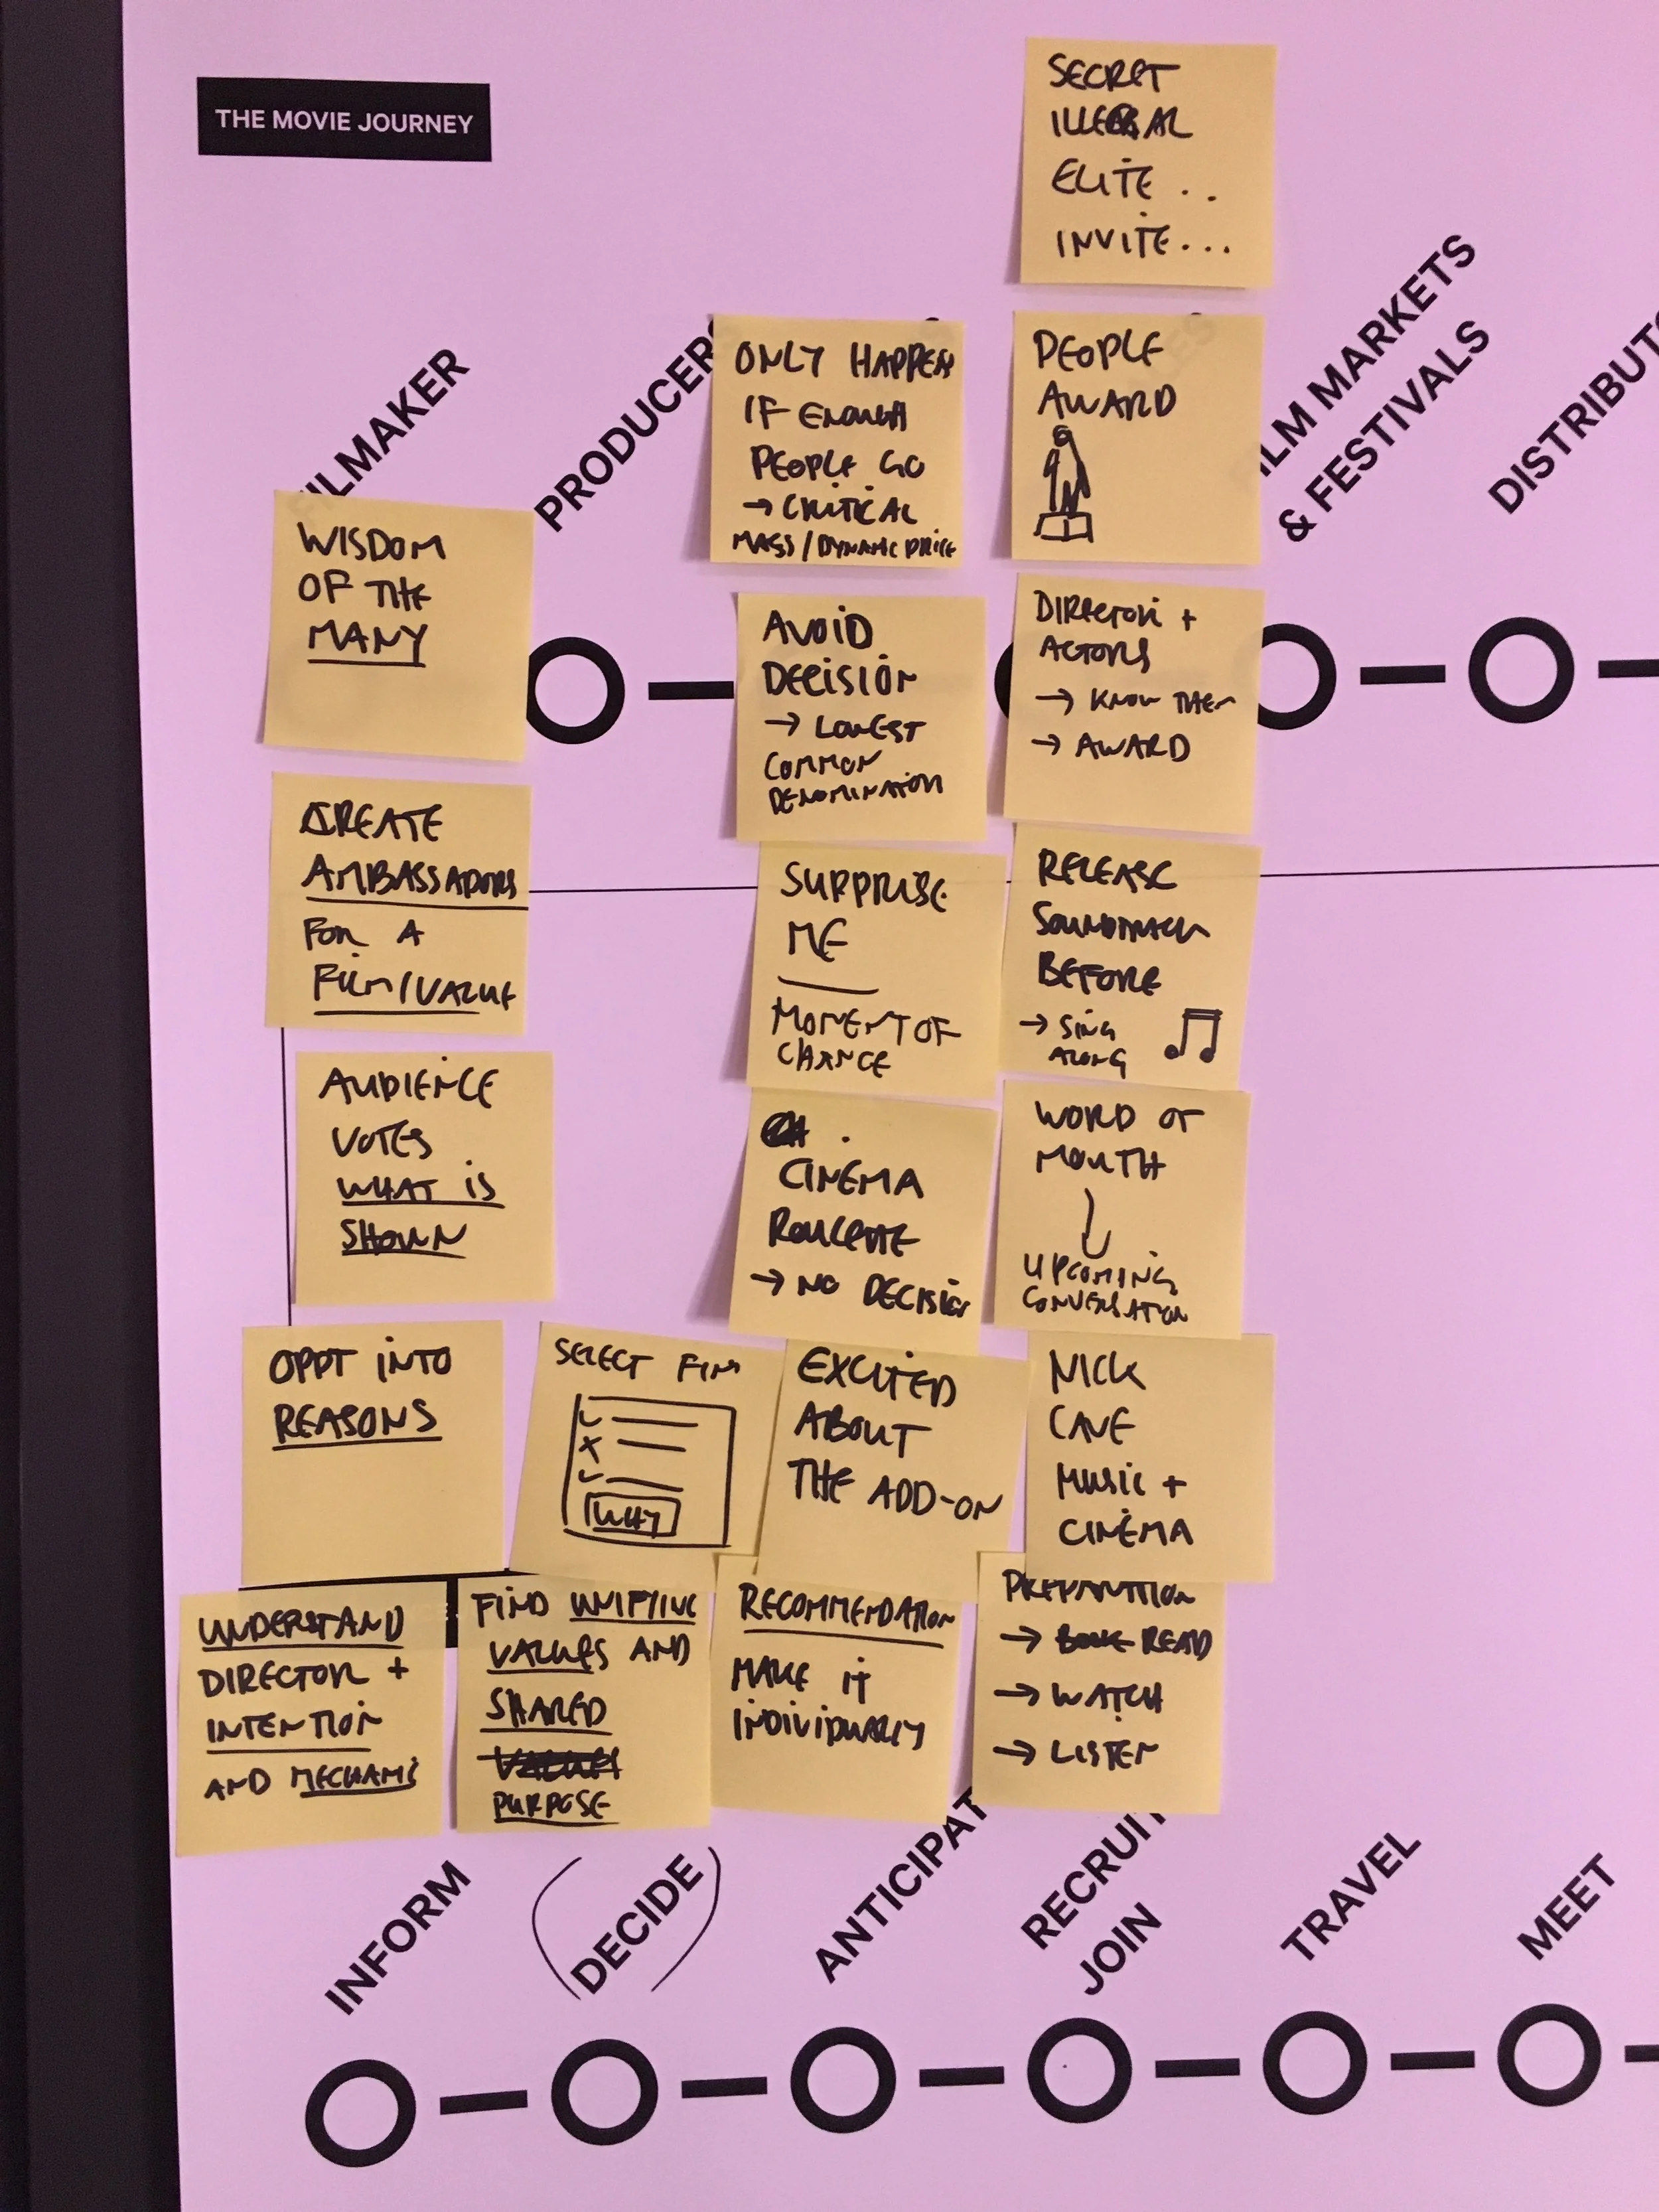 THE MOVIE JOURNEY
SECRET
ILLEGAL
ELITE ..
INVITE...
FILMAKER
PRODUCERS
FILM MARKETS
& FESTIVALS
DISTRIBUT
ONLY HAPPEN
IF ENOUGH
PEOPLE GO
→ CRITICAL
MASS / DYNAMIC PRICE
PEOPLE
AWARD
WISDOM
OF THE
MANY
AVOID
DECISION
→ LOWEST
COMMON
DENOMINATOR
DIRECTOR +
ACTORS
→ KNOW THEM
→ AWARD
CREATE
AMBASSADORS
FOR A
FILM/VALUE
SURPRISE
ME
MOMENT OF
CHANCE
RELEASE
SOUNDTRACK
BEFORE
→ SING
ALONG
AUDIENCE
VOTES
WHAT IS
SHOWN
CINEMA
ROULETTE
→ NO DECISION
WORD OF
MOUTH
UPCOMING
CONVERSATION
OPPT INTO
REASONS
SELECT FILM
WHY
EXCITED
ABOUT
THE ADD-ON
NICK
CAVE
MUSIC +
CINEMA
UNDERSTAND
DIRECTOR +
INTENTION
AND
FIND
VALUES AND
SHARED
PURPOSE
RECOMMENDATION
MAKE IT
INDIVIDUALLY
PREPARATION
→ READ
→ WATCH
→ LISTEN
INFORM
DECIDE
ANTICIPAT
RECRUIT
JOIN
TRAVEL
MEET